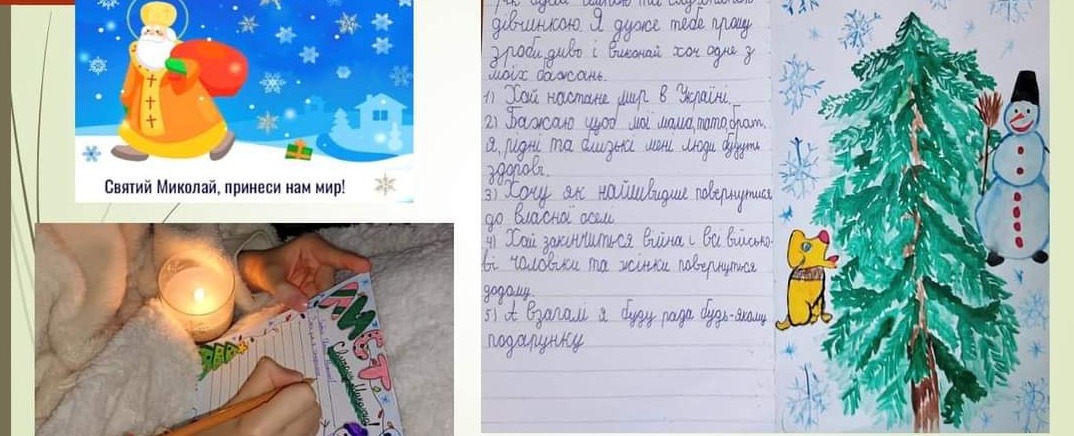 Святий Миколай, принеси нам мир!
ЛИСТ
Святому Миколаю
дівчинкою. Я дуже тебе прошу
зроби диво і виконай хоч одне з
моїх бажань.
1) Хай настане мир в Україні.
2) Бажаю щоб мої мама, тато, брат,
я, рідні та близькі мені люди будуть
здорові.
3) Хочу як найшвидше повернутися
до власної осел
4) Хай закінчиться війна і всі військо-
ві чоловіки та жінки повернуться
додому.
5) А взагалі я буду рада будь-якому
подарунку